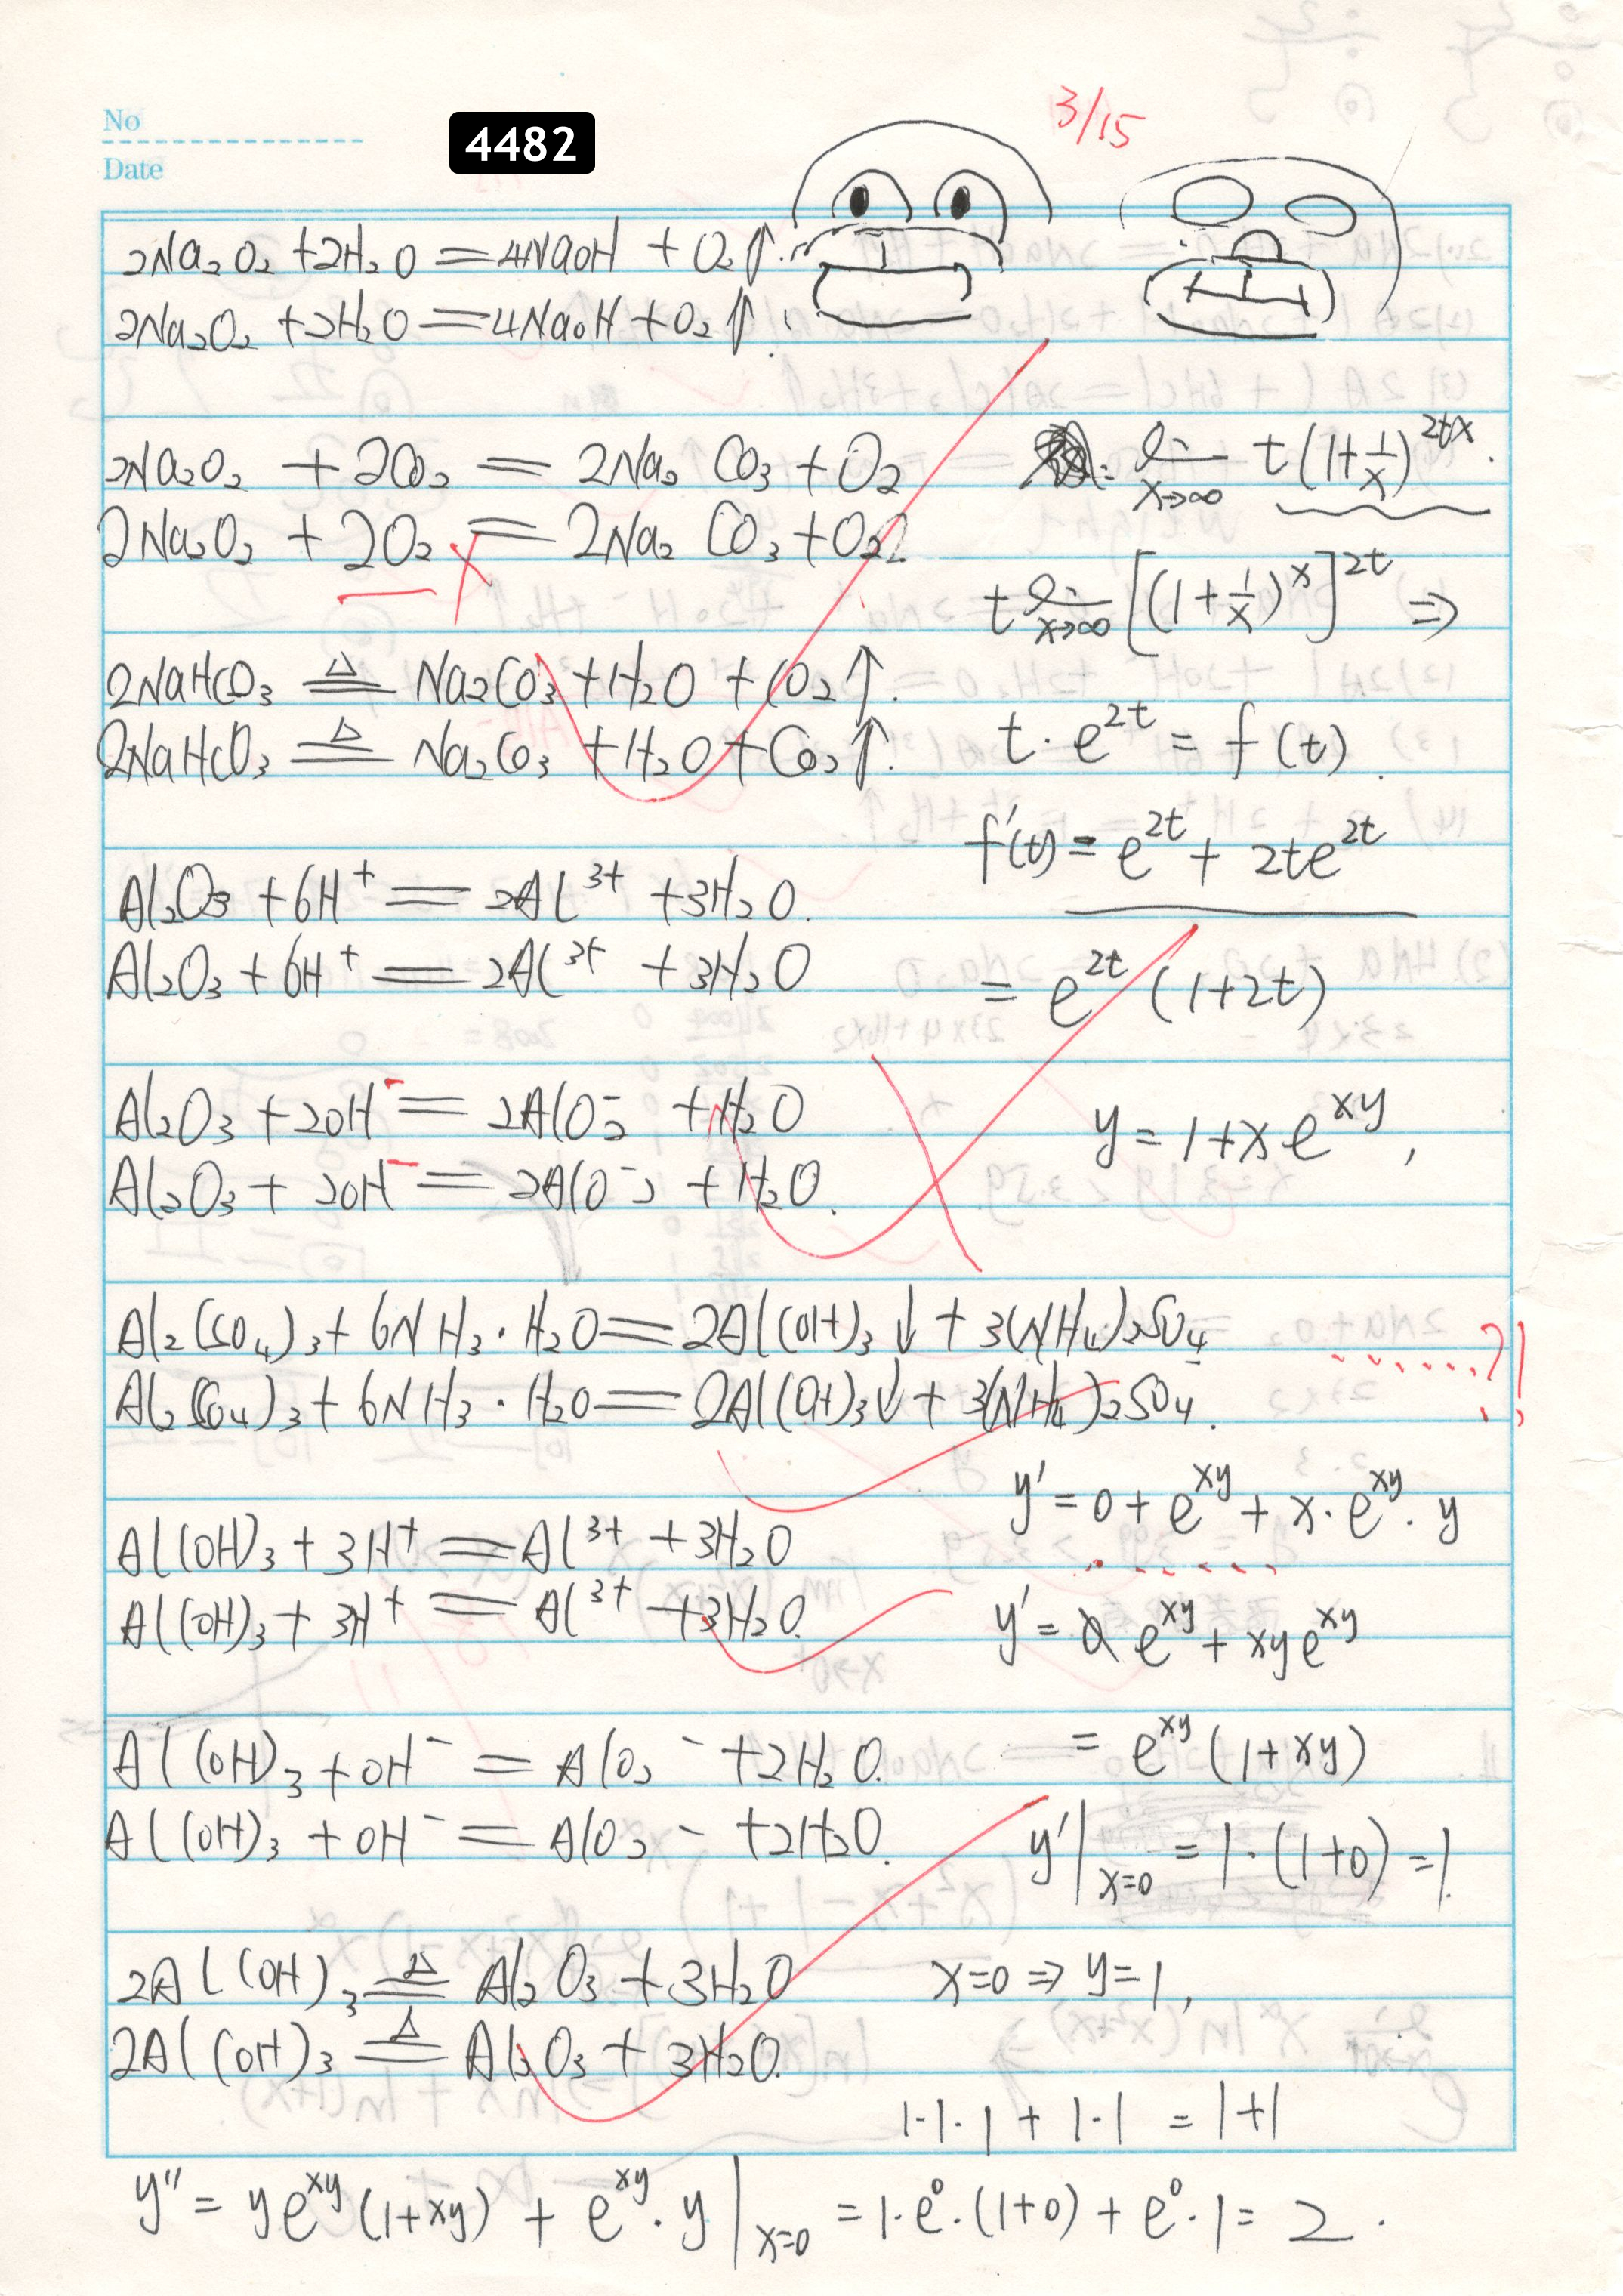 No
Date
4482
3/15
2Na₂O₂ + 2H₂O = 4NaOH + O₂↑.
2Na₂O₂ + 2H₂O = 4NaOH + O₂↑.
2Na₂O₂ + 2CO₂ = 2Na₂CO₃ + O₂
2Na₂O₂ + 2O₂ = 2Na₂CO₃ + O₂
2NaHCO₃ ≜ Na₂CO₃ + H₂O + CO₂↑.
2NaHCO₃ ≜ Na₂CO₃ + H₂O + CO₂↑.
Al₂O₃ + 6H⁺ = 2Al³⁺ + 3H₂O.
Al₂O₃ + 6H⁺ = 2Al³⁺ + 3H₂O
Al₂O₃ + 2OH⁻ = 2AlO₂⁻ + H₂O
Al₂O₃ + 2OH⁻ = 2AlO₂⁻ + H₂O.
Al₂(SO₄)₃ + 6NH₃·H₂O = 2Al(OH)₃↓ + 3(NH₄)₂SO₄
Al₂(SO₄)₃ + 6NH₃·H₂O = 2Al(OH)₃↓ + 3(NH₄)₂SO₄.
Al(OH)₃ + 3H⁺ = Al³⁺ + 3H₂O
Al(OH)₃ + 3H⁺ = Al³⁺ + 3H₂O.
Al(OH)₃ + OH⁻ = AlO₂⁻ + 2H₂O.
Al(OH)₃ + OH⁻ = AlO₂⁻ + 2H₂O.
2Al(OH)₃ ≜ Al₂O₃ + 3H₂O
2Al(OH)₃ ≜ Al₂O₃ + 3H₂O.
lim x→∞ t(1+1/x)^2tx.
t lim x→∞ [(1+1/x)^x]^2t ⇒
t·e^2t = f(t).
f'(t) = e^2t + 2te^2t
= e^2t (1+2t)
y = 1+xe^xy,
?!
y' = 0 + e^xy + x·e^xy·y
y' = e^xy + xye^xy
= e^xy (1+xy)
y'|x=0 = 1·(1+0) = 1.
x=0 ⇒ y=1,
1·1·1 + 1·1 = 1+1
y'' = ye^xy (1+xy) + e^xy·y|x=0 = 1·e⁰·(1+0) + e⁰·1 = 2.